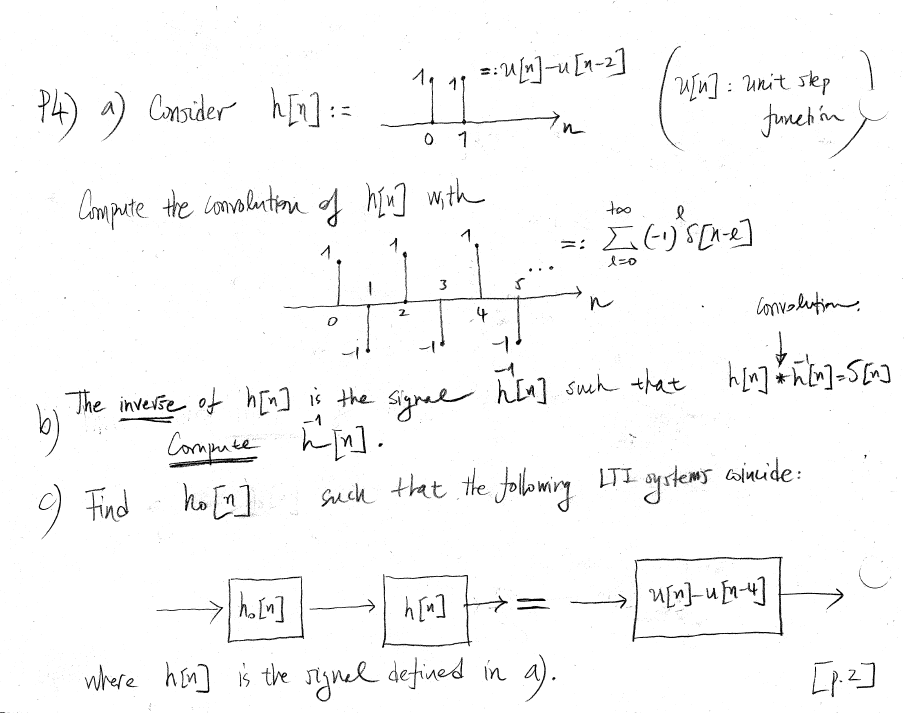 P4) a) Consider h[n] := 1 1 =: u[n]-u[n-2] (u[n] : unit step function)
0 1 n
Compute the convolution of h[n] with
1 1 1 ... =: +∞ ∑ l=0 (-1)^l δ[n-l]
0 1 2 3 4 5 n
-1 -1 -1
convolution.
b) The inverse of h[n] is the signal h^-1[n] such that h[n] * h^-1[n] = δ[n]
Compute h^-1[n].
c) Find h₀[n] such that the following LTI systems coincide:
h₀[n] h[n] = u[n]-u[n-4]
where h[n] is the signal defined in a). [p.2]